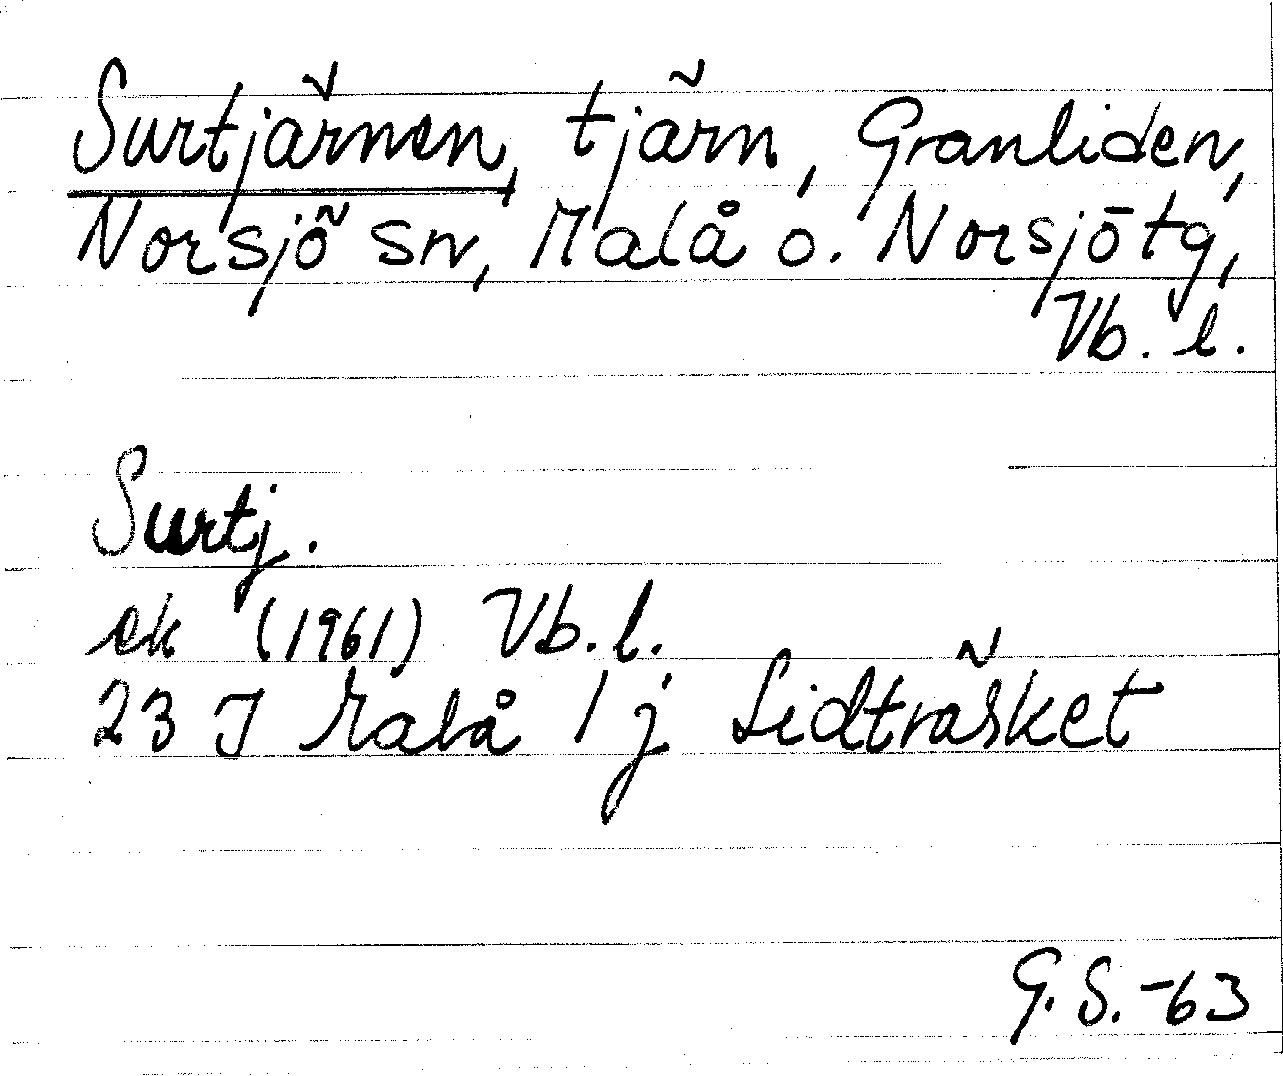 Surtjärnen, tjärn, Granliden,
Norsjö sn, Malå o. Norsjö tg,
Vb. l.
Surtj.
ek (1961) Vb. l.
23 J Malå 1 j Lidträsket
G. S. -63